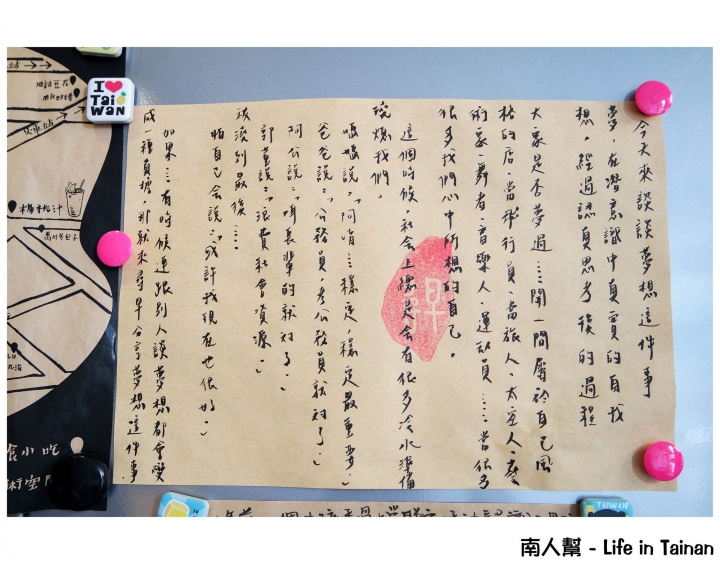 今天來談談夢想這件事
夢，在潛意識中真實的自我
想，經過認真思考後的過程
大家是否夢過……開一間屬於自己風
格的店、當飛行員、當旅人、太空人、藝
術家、舞者、音樂人、運動員……當很多
很多我們心中所想的自己。
這個時候，社會上總是會有很多冷水準備
澆熄我們。
媽媽說：「阿唷……穩定，穩定最重要。」
爸爸說：「公務員，考公務員就對了。」
阿公說：「聽長輩的就對了。」
郭董說：「浪費社會資源。」
被潑到最後……
怕自己會說：「或許我現在也很好。」
如果……有時候連跟別人談夢想都會變
成一種負擔，那就來尋早分享夢想這件事。
早
I
Tai
WAN
楊桃汁
食小吃
術空間
TAIWAN
南人幫 - Life in Tainan